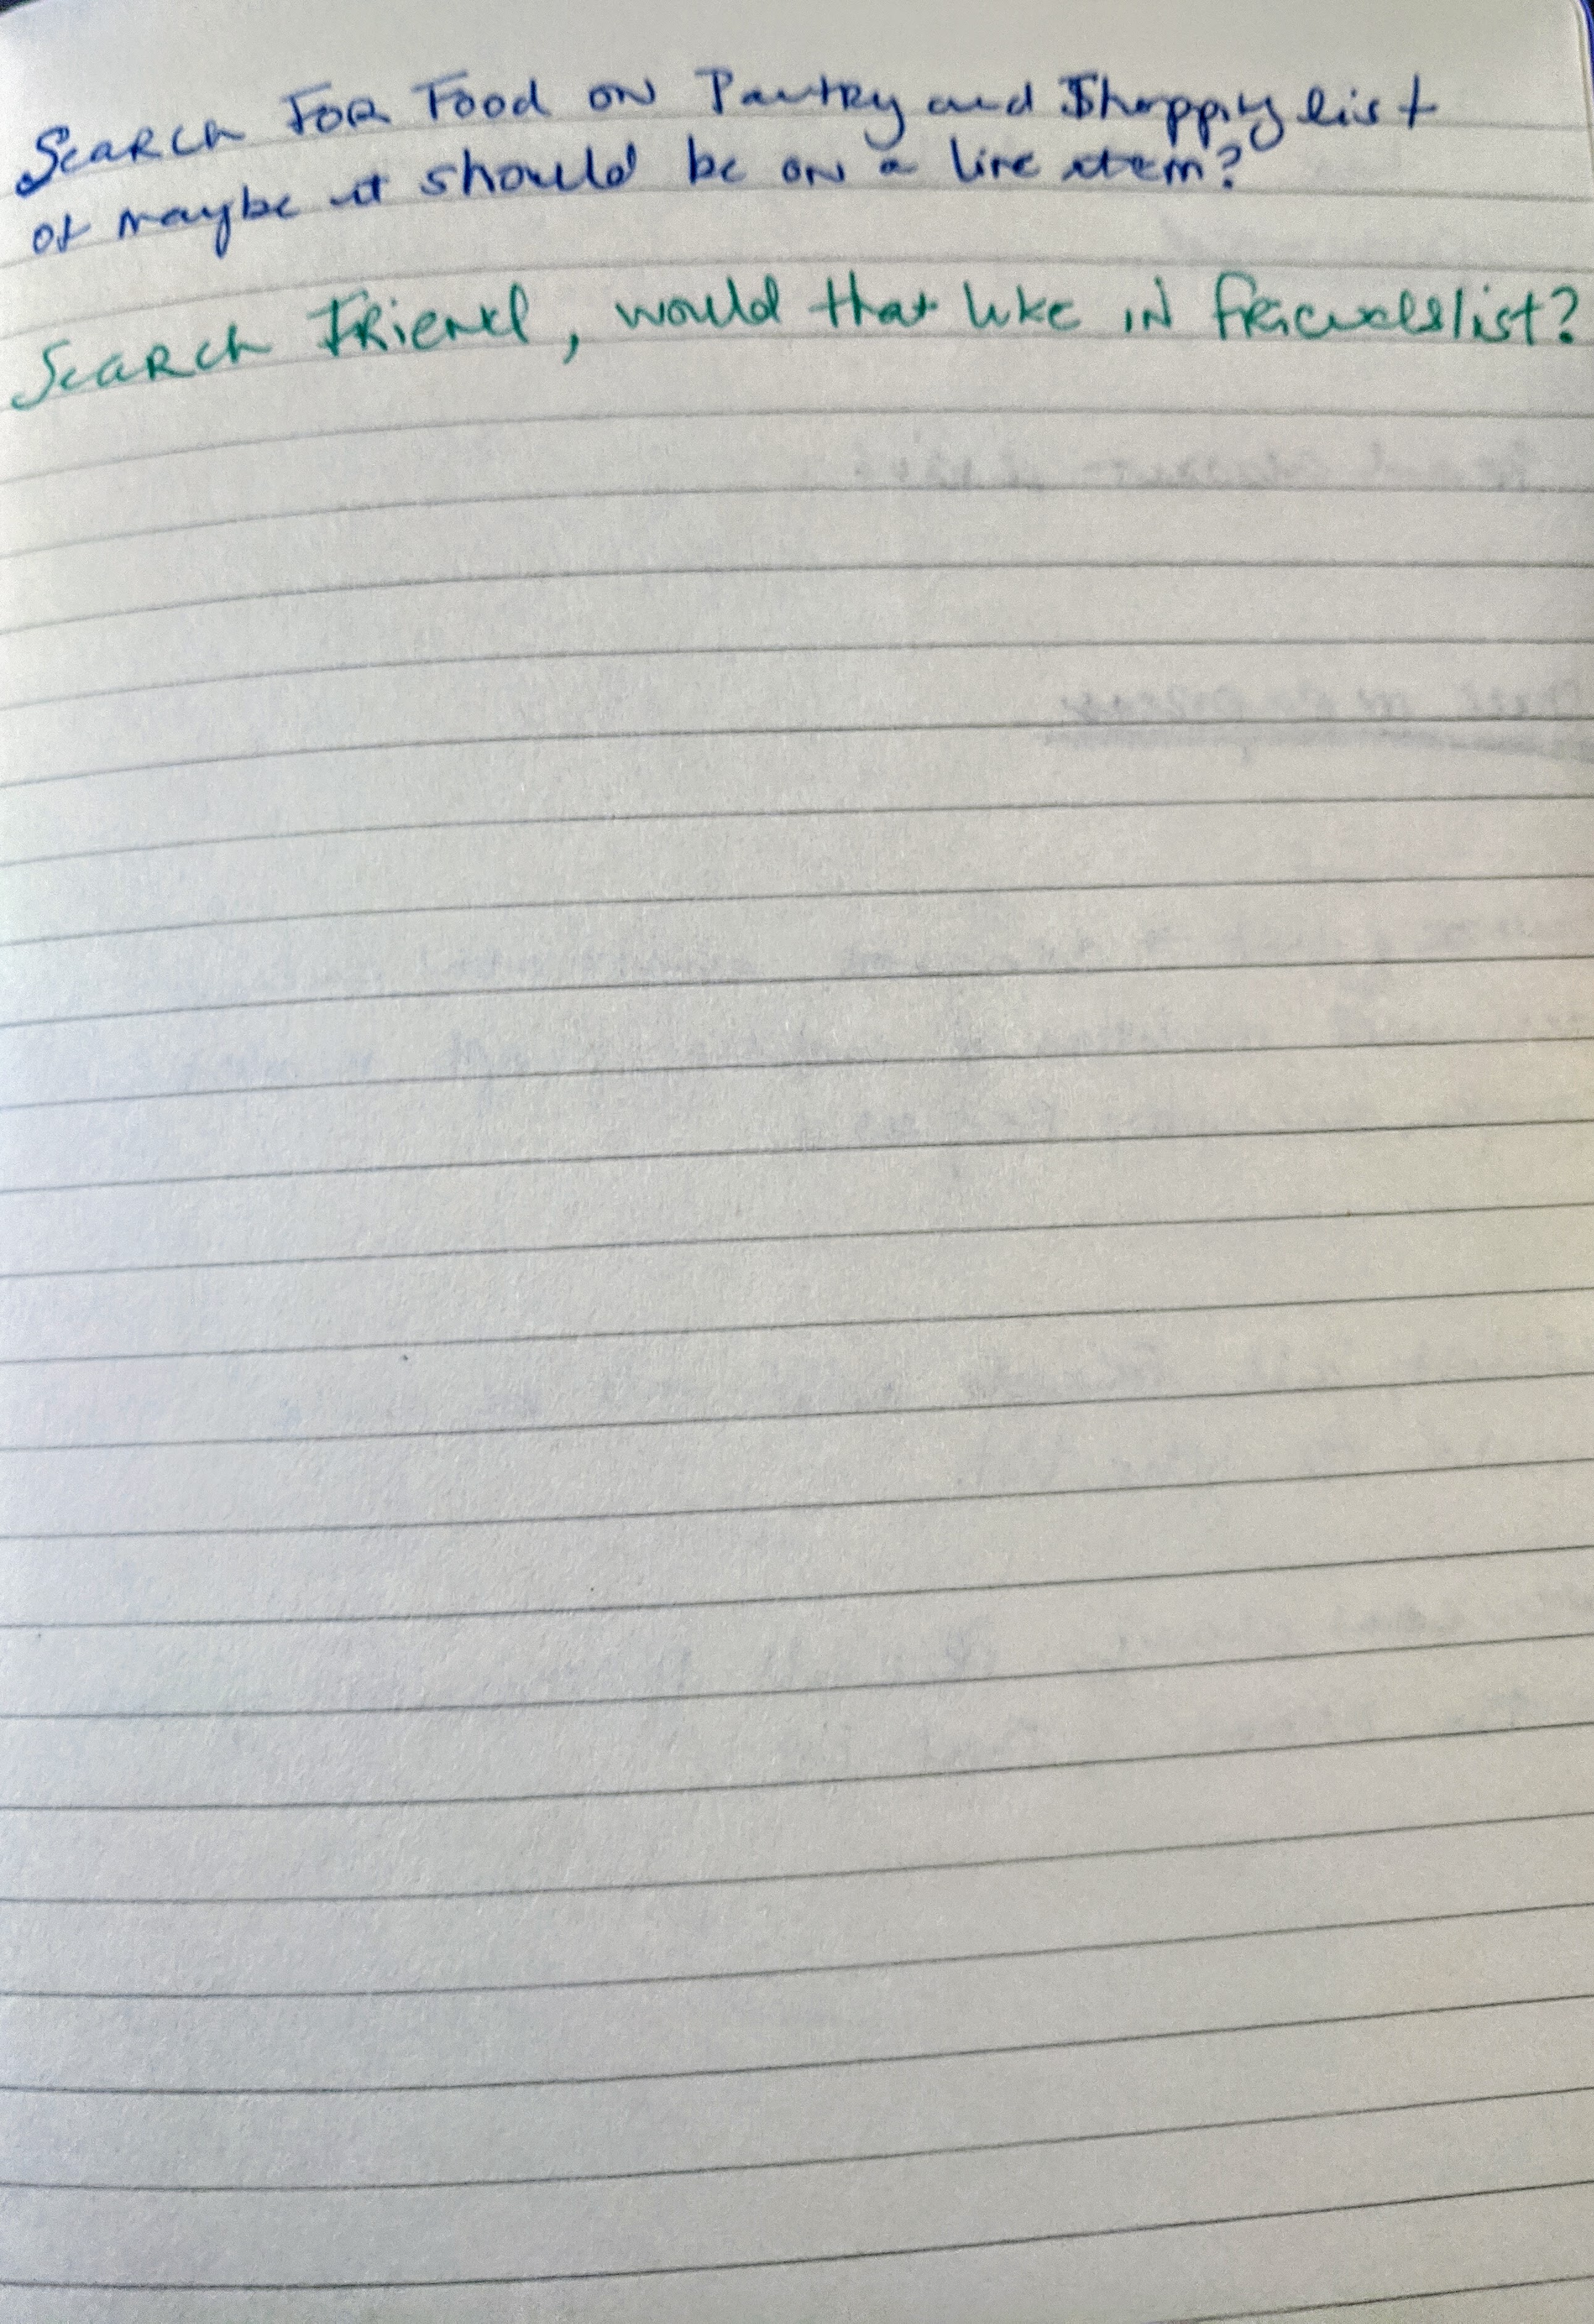 Search For Food on Pantry and Shopping list
or maybe it should be on a line item?
Search Friend, would that like in friendslist?